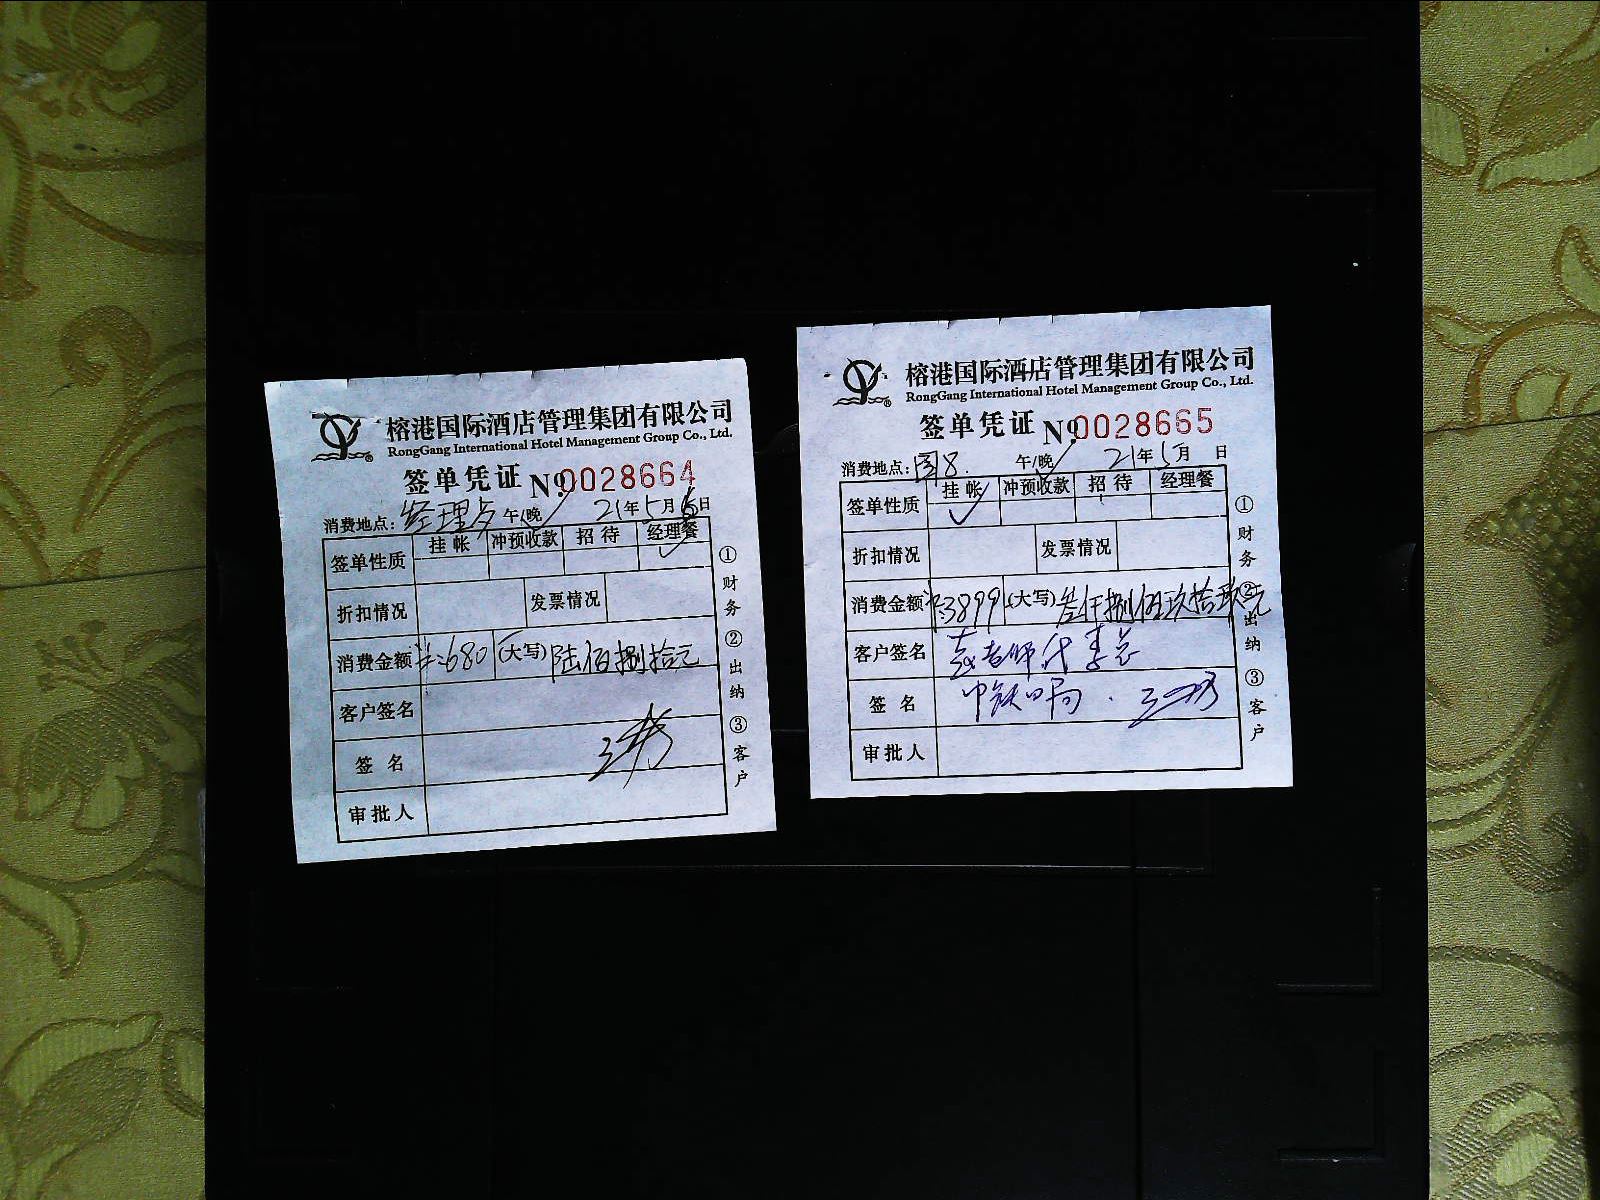 榕港国际酒店管理集团有限公司
RongGang International Hotel Management Group Co., Ltd.
签单凭证 №0028664
消费地点: 经理 午/晚 21年5月6日
签单性质 挂帐 冲预收款 招待 经理餐
✓
折扣情况 发票情况
消费金额 ¥:680 (大写) 陆佰捌拾元
客户签名
签名
审批人
①财务 ②出纳 ③客户
榕港国际酒店管理集团有限公司
RongGang International Hotel Management Group Co., Ltd.
签单凭证 №0028665
消费地点: 8. 午/晚 21年5月 日
签单性质 挂帐 冲预收款 招待 经理餐
✓
折扣情况 发票情况
消费金额 ¥:3899 (大写) 叁仟捌佰玖拾玖元
客户签名 老师代李总
签名 中铁四局.
审批人
①财务 ②出纳 ③客户